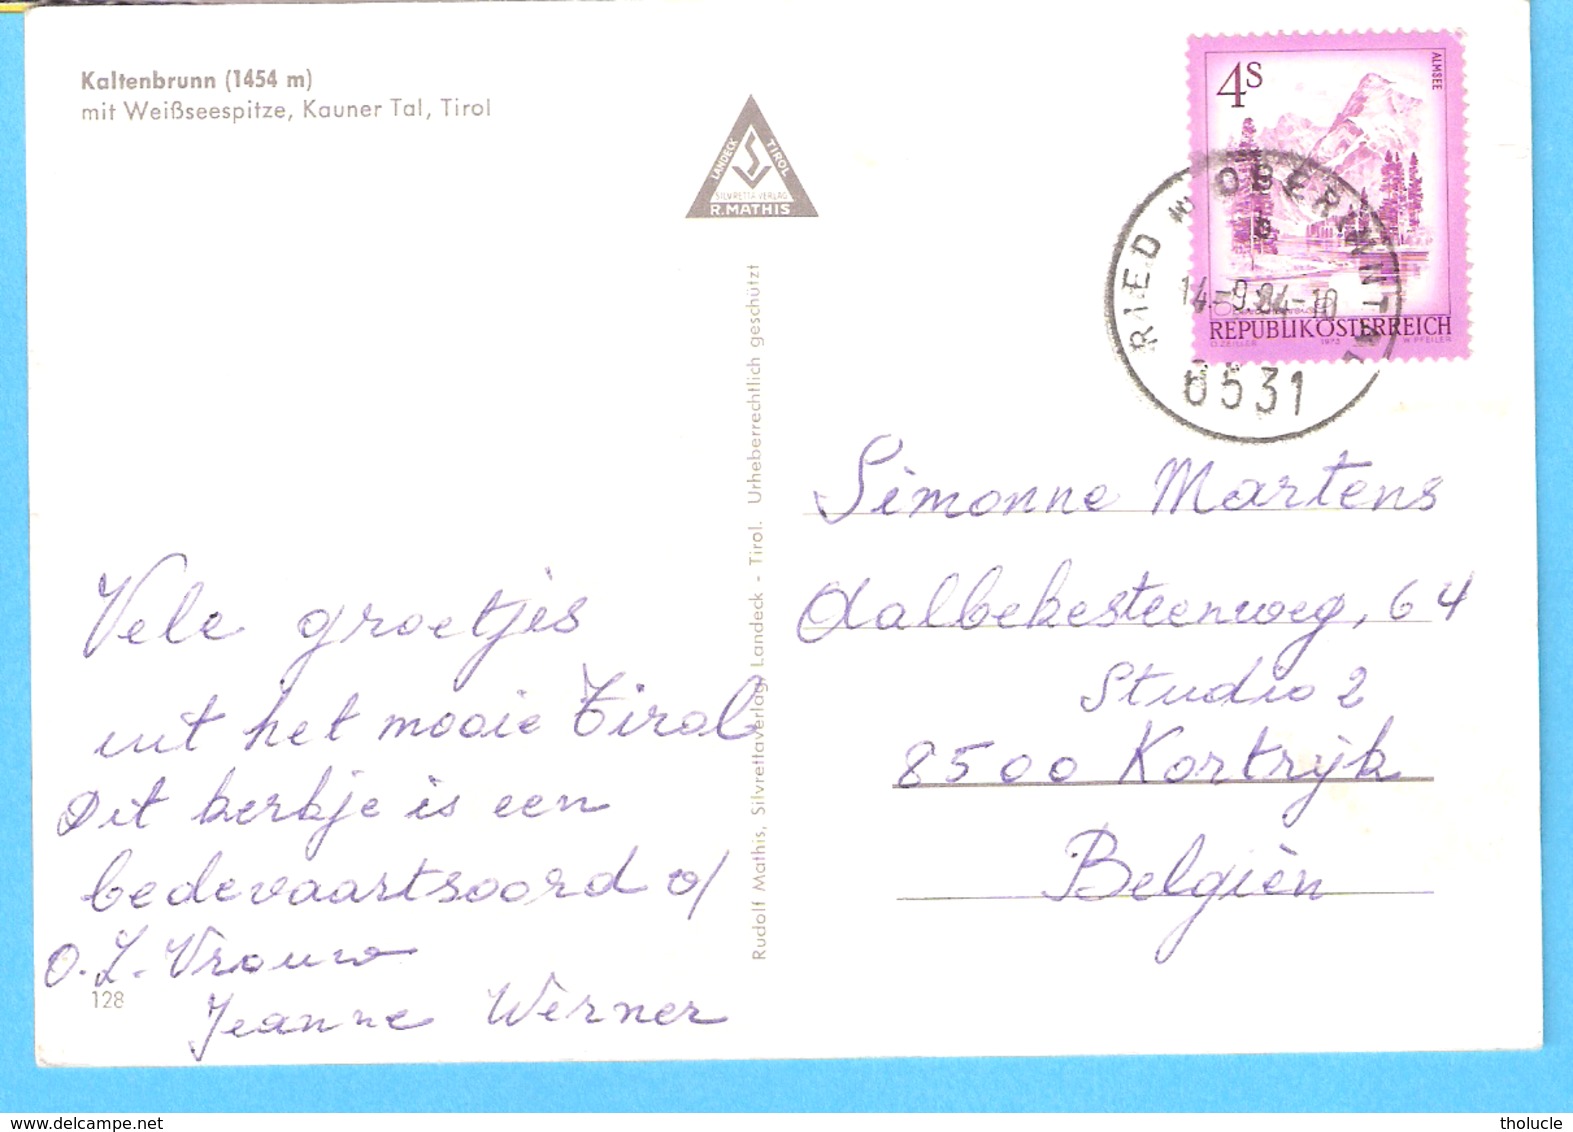 Kaltenbrunn (1454 m)
mit Weißseespitze, Kauner Tal, Tirol
LANDECK TIROL
SILVRETTA-VERLAG
R. MATHIS
Rudolf Mathis, Silvrettaverlag, Landeck - Tirol. Urheberrechtlich geschützt
4S
ALMSEE
REPUBLIK ÖSTERREICH
O. ZEILLER 1973 W. PFEILER
RIED OBERINNTAL
14.-9.84-10
6531
Vele groetjes
uit het mooie Tirol
Dit kerkje is een
bedevaartsoord v/
O.L. Vrouw
Jeanne Werner
128
Simonne Martens
Aalbekesteenweg, 64
Studio 2
8500 Kortrijk
Belgiën
tholucle